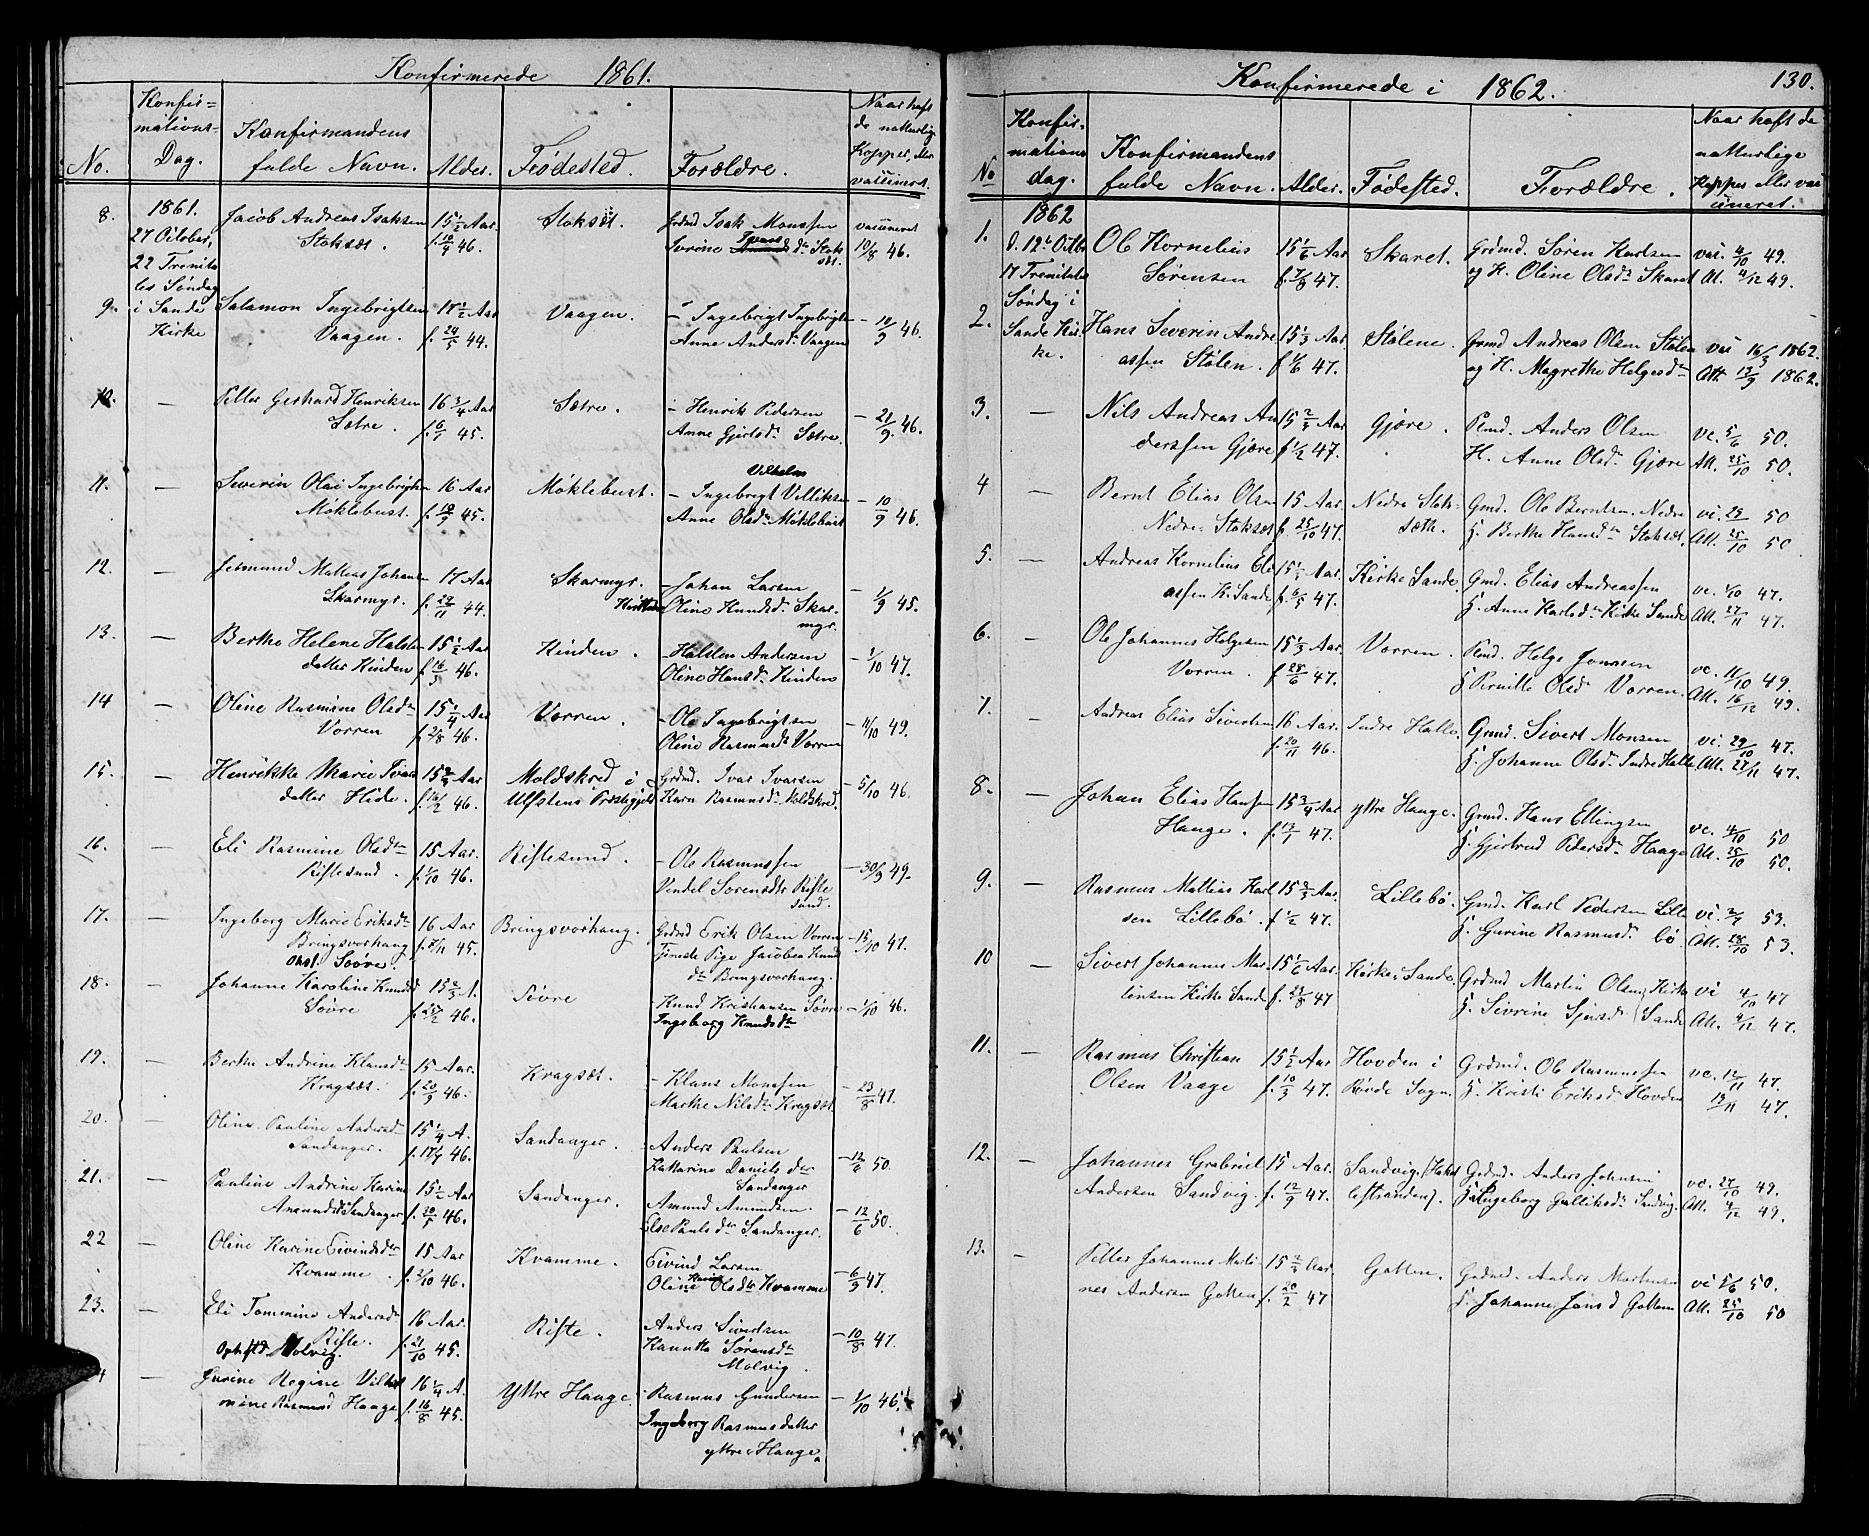 Konfirmerede 1861.
No.
Konfir=
mations=
Dag.
Konfirmandens
fulde Navn.
Alder.
Fødested.
Forældre.
Naar haft
de naturlig
Kopper, eller
vaccineret.
8.
1861.
27 October,
22 Trinita
tes Søndag
i Sande
Kirke
Jacob Andreas Isaksen
Stoksæt.
15½ Aar
f. 10/9 46.
Stoksæt.
Grdmd Isak Monssen
Sivrine Ivars dr. Stok
sæt.
vaccineret
10/8 46.
9.
Salamon Ingebrigtsen
Vaagen.
17½ Aar
f. 24/5 44.
Vaagen.
— Ingebrigt Ingebrigtsen
Anne Andersdr. Vaagen
— 10/9 46.
10. —
Petter Gerhard Henriksen
Sætre.
16 3/4 Aar
f. 6/1 45.
Sætre.
— Henrik Pedersen
Anne Gjertsdr. Sætre.
— 21/9 46.
11. —
Severin Olai Ingebrigtsen
Møklebust.
16 Aar
f. 10/9 45.
Møklebust.
Vilhelm
— Ingebrigt Villiksen
Anne Olsdr. Møklebust
— 10/9 46.
12. —
Jetmund Mathias Johans
Skarmyr.
17 Aar
f. 22/11 44.
Skarmyr.
— Johan Larsen
Oline Knudsdr. Skar
myr.
— 1/9 45.
13. —
Berthe Helene Halsten
datter Kinden
15½ Aar
f. 16/5 46.
Kinden.
— Halsten Andersen
Oline Hansdr. Kinden
— 1/10 47.
14 —
Oline Rasmine Olsdr
Vorren
15 1/4 Aar
f. 2/8 46.
Vorren.
— Ole Ingebrigtsen
Oline Rasmusdr Vorren
— 11/10 49.
15. —
Henrikke Marie Ivars
datter Hide.
15 2/3 Aar
f. 16/2 46.
Moldskred i
Ulfstens Præstegjeld
Grdmd. Ivar Ivarsen
Karn Rasmusdr. Moldskred.
— 5/10 46.
16. —
Eli Rasmine Olsdr
Riftesund.
15 Aar.
f. 1/10 46.
Riftesund.
— Ole Rasmussen
Vendel Sørensdtr Rifte
sund.
— 30/9 49.
17. —
Ingeborg Marie Eriksdr
Bringsvorhang
Søvre.
16 Aar
f. 7/11 45.
Bringsvorhang.
Grdmd Erik Olsen Vorren
Tjeneste Pige Jacobea Knud
dr. Bringsvorhang.
— 15/10 47.
18. —
Johanne Karoline Knudsd
Søvre
15 2/3 A.
f. 27/2 46.
Søvre
Knud Kristiansen Søvre
Ingeborg Knudsdr
— 1/10 46.
19. —
Berthe Andrine Klausdr
Kragsæt.
15 Aar.
f. 20/9 46.
Kragsæt.
— Klaus Monssen
Marthe Nilsdr. Kragsæt.
— 23/8 47.
20. —
Oline Pauline Andersdr
Sandanger.
15 1/4 A.
f. 17/7 46.
Sandanger.
Anders Paulsen
Katharine Daniels dtr
Sandanger
— 12/6 50.
21. —
Pauline Andrine Karine
Amundsdr Sandanger
15½ Aar
f. 20/5 46.
Sandanger.
Amund Amundsen.
Else Pauls dtr Sandanger.
— 12/6 50.
22 —
Oline Karine Eivindsdtr
Kvamme.
15 Aar
f. 2/10 46.
Kvamme.
Eivind Larsen
Oline Karine Olsdtr Kvamme
— 6/9 47.
23. —
Eli Tommine Andersdr
Rifte.
Opholdst. Molvig.
16 Aar.
f. 21/10 45.
Rifte.
Anders Sivertsen
Kanutte Sørensdtr
Molvig.
— 10/8 47.
24 —
Gurine Regine Vilhel
mine Rasmusd Hauge
16 1/4 A.
f. 16/8 45.
Yttre Hauge
Rasmus Gundersen
Ingeborg Rasmusdatter
yttre Hauge
— 1/10 46.
Konfirmerede i 1862.
130.
No
Konfir=
mations
dag.
Konfirmandens
fulde Navn.
Alder.
Fødested.
Forældre.
Naar haft de
naturlige
Kopper eller vac
cineret.
1.
1862
d. 12te Octbr
17 Trinitates
Søndag i
Sande Kir=
ke.
Ole Kornelius
Sørensen
15 1/6 Aar
f. 7/9 47.
Skaret.
Grdmd. Søren Karlsen
og H. Oline Olsdr Skaret
vac. 4/10 49.
Att. 4/12 49.
2.
Hans Severin Andre
assen Stølen.
15 1/3 Aar.
f. 1/6 47.
Stølene.
Grmd Andreas Olsen Stølen
og H. Magrethe Helgesdr
vac 16/3 1862.
Att. 13/9 1862.
3. —
Nils Andreas An
derssen Gjøre
15 2/3 Aar
f. 1/2 47.
Gjøre.
Plmd. Anders Olsen
H. Anne Olsd. Gjøre
vc. 5/6 50.
Att. 25/10 50.
4 —
Bernt Elias Olsen
Nedre Stoksæt
15 Aar.
f. 25/10 47.
Nedre Stok=
sæth.
Gmd. Ole Berntsen. Nedre
H. Berthe Hansdr Stoksæt.
50
Att. 25/10 50
5. —
Andreas Kornelius Eli
assen K. Sande
15½ Aar.
f. 6/5 47.
Kirke Sande.
Gmd. Elias Andreassen
H. Anne Karlsdr Kirke Sande
vc. 1/10 47.
Att. 27/11 47.
6. —
Ole Johannes Helgesen
Vorren.
15 1/3 Aar.
f. 28/6 47.
Vorren.
Plmd. Helge Jonssen
H. Pernille Olsdr Vorren.
vc. 11/10 49.
Att. 16/12 49.
7. —
Andreas Elias Sivertsen
16 Aar.
f. 20/11 46.
Indre Halle.
Grmd. Sivert Monsen
H. Johanne Olsdr Indre Halle
vc. 29/10 47.
Att. 27/11 47.
8. —
Johan Elias Hansen
Hauge.
15 3/4 Aar
f. 13/1 47.
yttre Hauge.
Grmd. Hans Ellingsen
H. Gjertrud Pedersdr Hauge
vc. 4/10 50
Att. 25/10 50.
9. —
Rasmus Mathias Karl
sen Lillebø.
15 2/3 Aar.
f. 1/2 47.
Lillebø.
Gmd. Karl Pedersen Lille
H. Gurine Rasmusdr. bø.
vi. 2/7 53.
Att. 28/10 53.
10 —
Sivert Johannes Mar
tinsen Kirke Sande
15 1/6 Aar.
f. 23/8 47
Kirke Sande
Grdmd Martin Olsen Kirke
H. Sivrine Sjursdr Sande
vi 4/10 47
Att. 4/12 47.
11. —
Rasmus Christian
Olsen Vaage
15½ Aar
f. 10/3 47.
Hovden i
Rovde Sogn.
Grdmd. Ole Rasmussen
H. Kristi Eriksdr Hovden
vc. 12/11 47.
13/11 47.
12. —
Johannes Grabriel
Andersen Sandvig.
15 Aar.
f. 12/9 47.
Sandvig.
lestranden).
Grdmd. Anders Johnsen
H. Ingeborg Gulliksdr Sandvig.
vc. 27/10 49.
Att. 4/12 49.
13. —
Petter Johannes Marti
nes Andersen Gotten
15 2/3 Aar.
f. 20/2 47
Gotten.
Grdmd. Anders Mortensen
H. Johanne Jons d Gotten
vi 5/6 50.
Att. 25/10 50